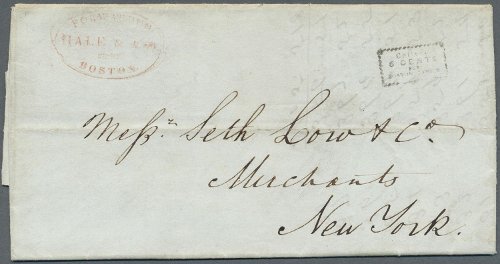 HALE & Co
BOSTON
6 CENTS
Messrs. Seth Low & Co.
Merchants
New York.